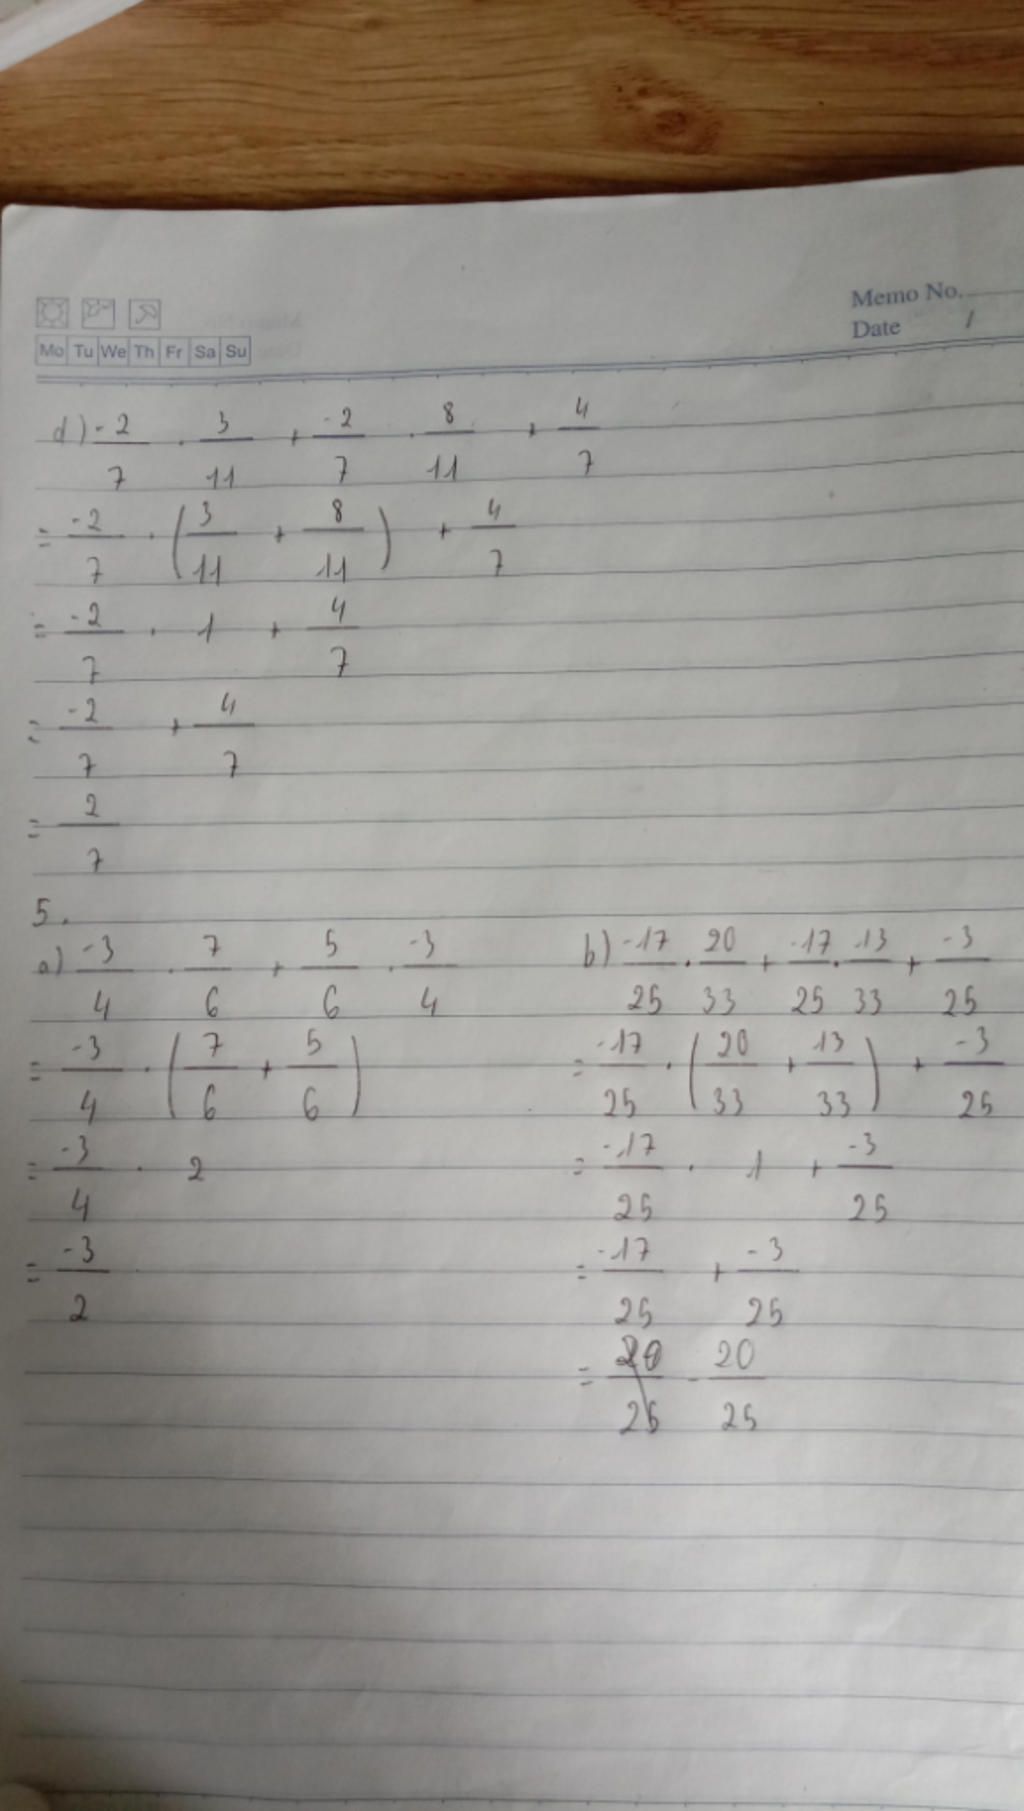 Memo No.
Date /
Mo Tu We Th Fr Sa Su
d) -2/7 . 3/11 + -2/7 . 8/11 + 4/7
= -2/7 . (3/11 + 8/11) + 4/7
= -2/7 . 1 + 4/7
= -2/7 + 4/7
= 2/7
5.
a) -3/4 . 7/6 + 5/6 . -3/4
= -3/4 . (7/6 + 5/6)
= -3/4 . 2
= -3/2
b) -17/25 . 20/33 + -17/25 . 13/33 + -3/25
= -17/25 . (20/33 + 13/33) + -3/25
= -17/25 . 1 + -3/25
= -17/25 + -3/25
= - 20/25